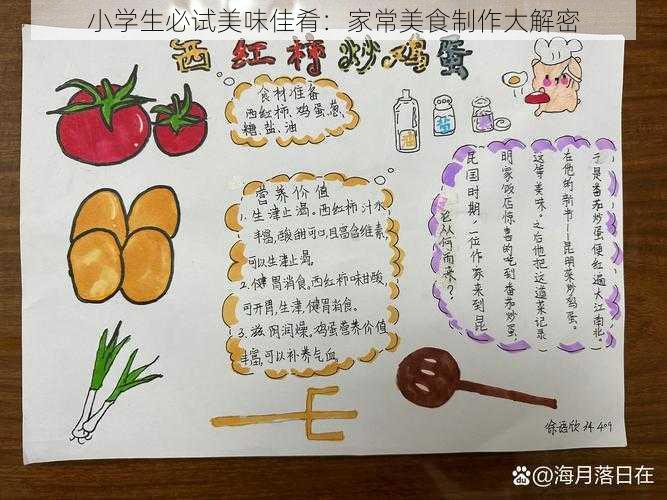 小学生必试美味佳肴：家常美食制作大解密
西红柿炒鸡蛋
食材准备
西红柿、鸡蛋、葱、
糖、盐、油
营养价值
1. 生津止渴。西红柿汁水
丰富，酸甜可口，且富含维素
可以生津止渴。
2. 健胃消食。西红柿味甘酸
可开胃，生津，健胃消食。
3. 滋阴润燥。鸡蛋营养价值
丰富，可以补养气血。
它从何而来？
民国时期，一位作家来到昆
明某饭店惊喜的吃到番茄炒蛋，
这等美味。之后他把这道菜记录
在他的新书——昆明菜炒鸡蛋。
于是番茄炒蛋便红遍大江南北。
409
@海月落日在